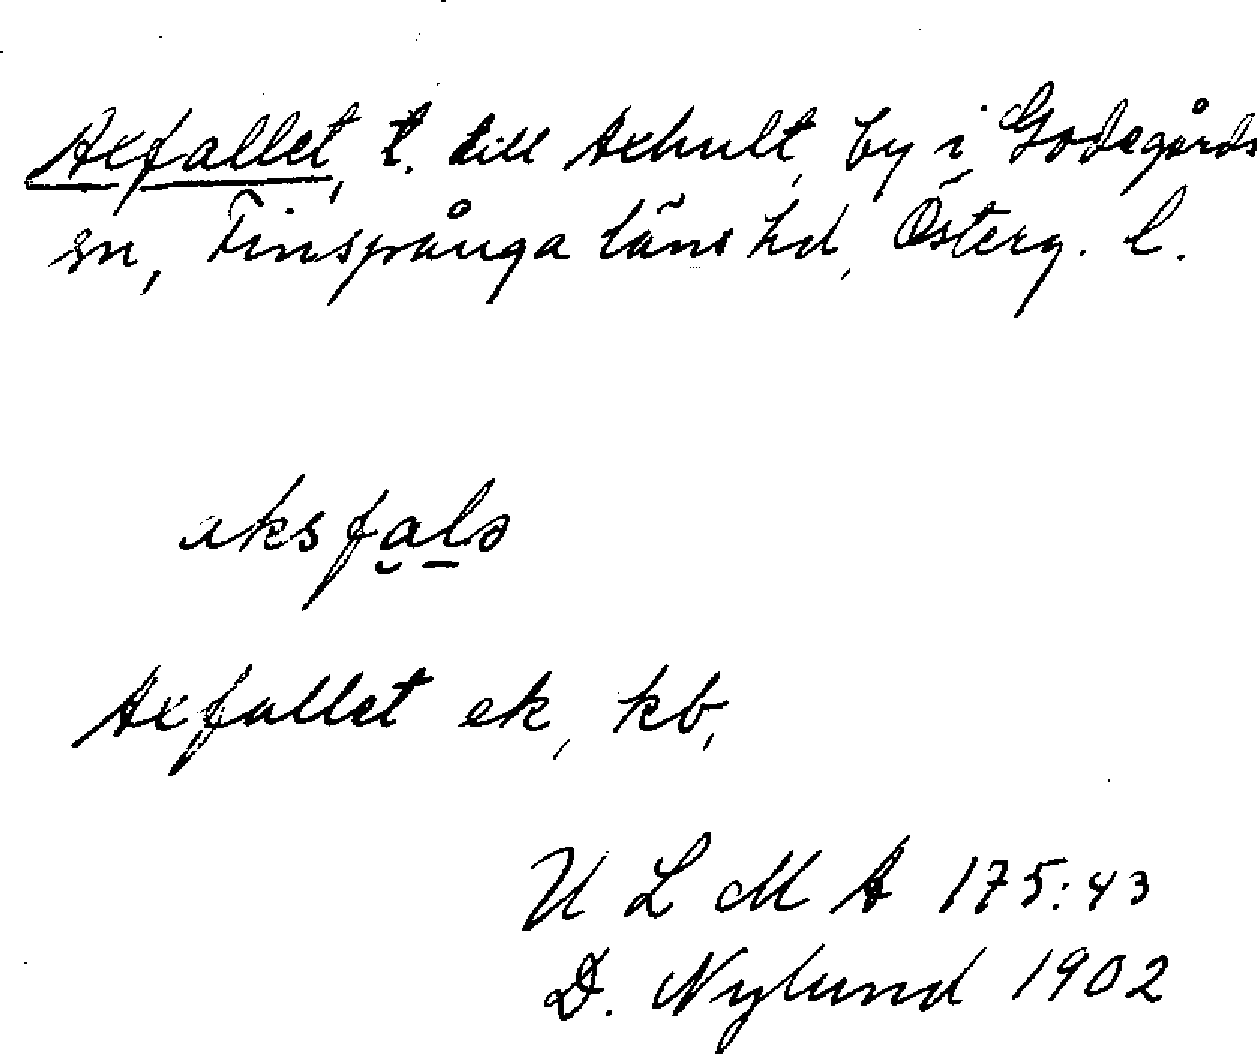 Axfallet, t. till Axhult, by i Godegårds
sn, Finspånga läns hd, Österg. l.
aksfalə
Axfallet ek, kb,
U L M A 175:43
D. Nylund 1902